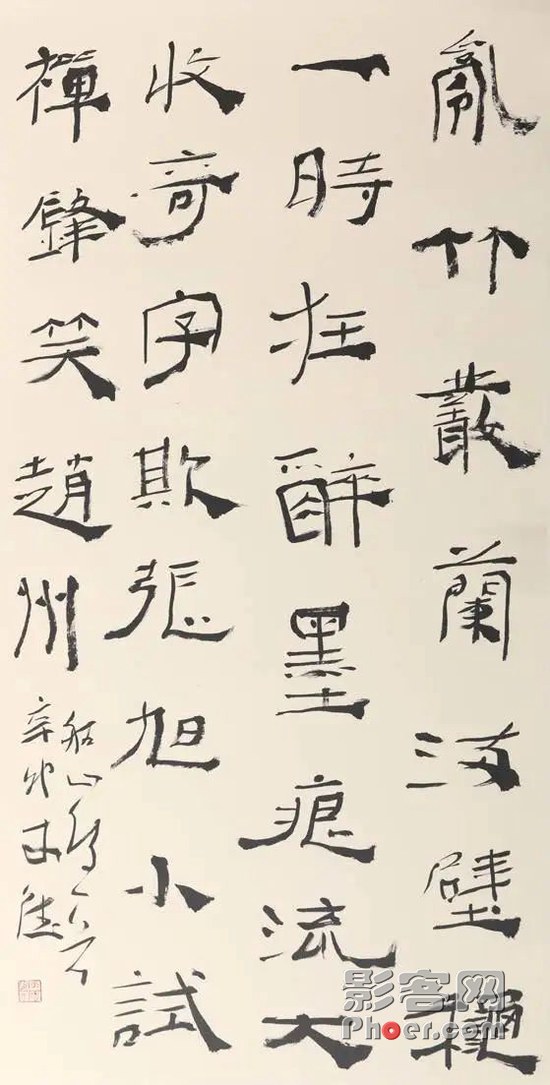 亂竹叢蘭滿壁
一時狂醉墨痕流大
收奇字欺張旭小試
禪鋒笑趙州
船山詩一首
辛卯
影客网
Phoer.com